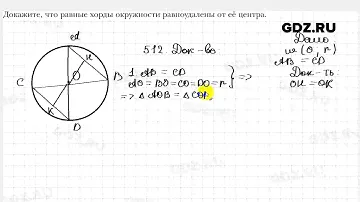 Докажите, что равные хорды окружности равноудалены от её центра.
GDZ.RU
512. Док-во:
Дано
ω(O, r)
AB = CD
Док-ть:
OH = OK
1. AB = CD
AO = BO = CO = DO = r
} =>
=> △AOB = △COD
A
H
O
C
B
K
D